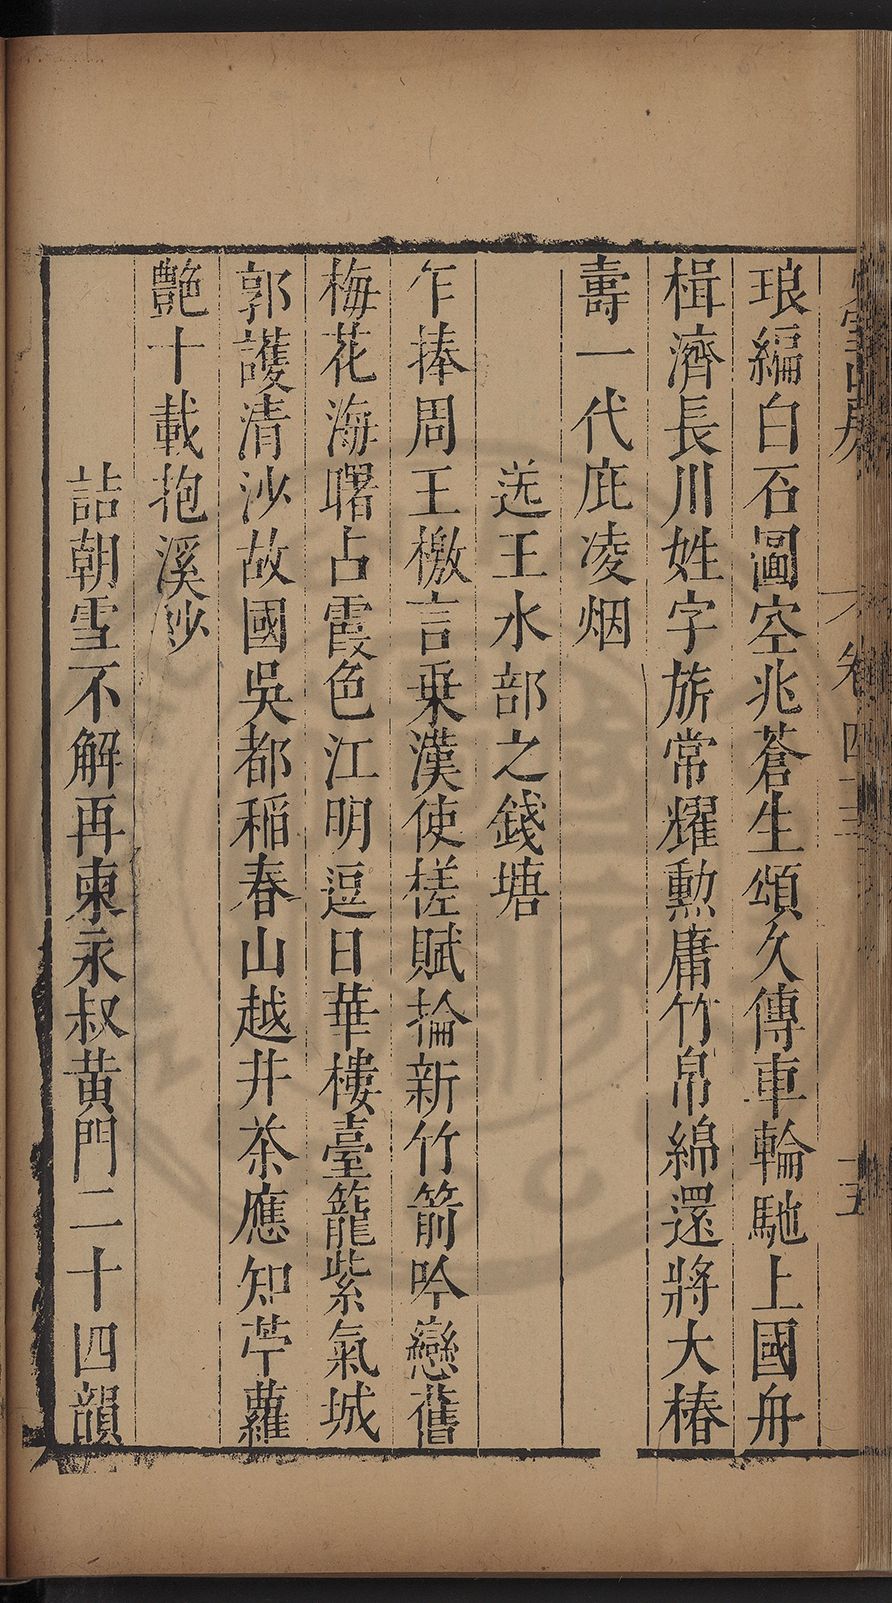 卷四十三
十五
琅編白石圖空兆蒼生頌久傳車輪馳上國舟
楫濟長川姓字旂常耀勳庸竹帛綿還將大椿
壽一代庇凌烟
送王水部之錢塘
乍捧周王檄言乗漢使槎賦掄新竹箭吟戀舊
梅花海曙占霞色江明逗日華樓臺籠紫氣城
郭護清沙故國吳都稻春山越井茶應知苧蘿
艶十載抱溪紗
詰朝雪不解再柬永叔黄門二十四韻